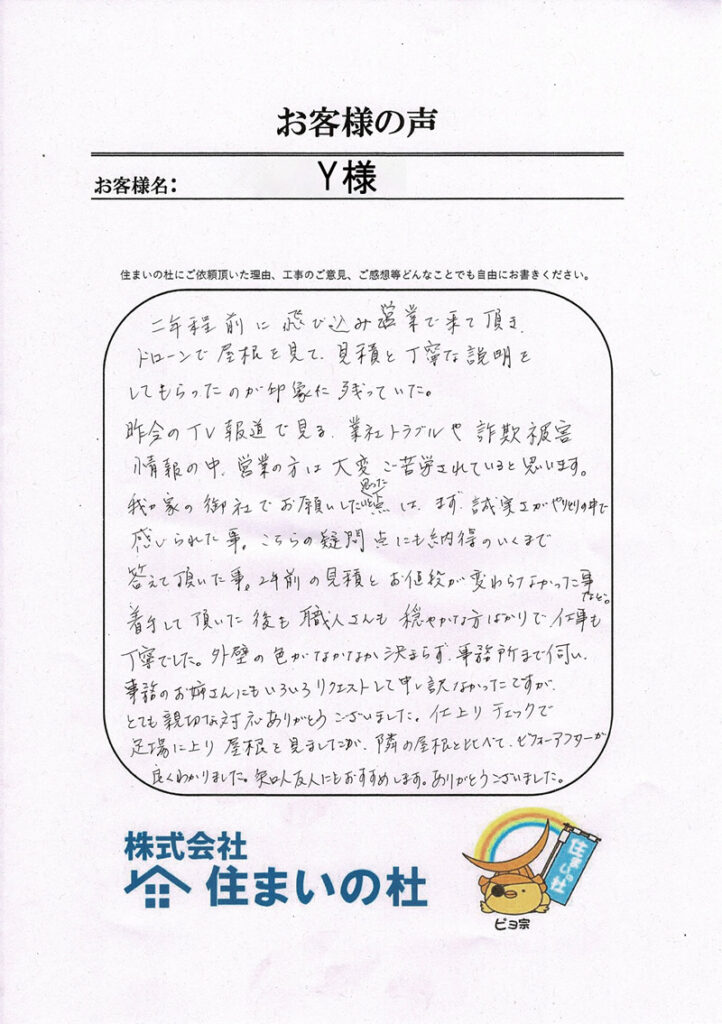 お客様の声
お客様名： Y様
住まいの杜にご依頼頂いた理由、工事のご意見、ご感想等どんなことでも自由にお書きください。
二年程前に飛び込み営業で来て頂き、
ドローンで屋根を見て、見積と丁寧な説明を
してもらったのが印象に残っていた。
昨今のTV報道で見る、業社トラブルや詐欺被害
情報の中、営業の方は大変ご苦労されていると思います。
我が家の御社でお願いしたいと思った点は、まず、誠実さがやりとりの中で
感じられた事。こちらの疑問点にも納得のいくまで
答えて頂いた事。2年前の見積とお値段が変わらなかった事など。
着手して頂いた後も職人さんも穏やかな方ばかりで仕事も
丁寧でした。外壁の色がなかなか決まらず、事務所まで伺い、
事務のお姉さんにもいろいろリクエストして申し訳なかったですが、
とても親切な対応ありがとうございました。仕上りチェックで
足場に上り屋根を見ましたが、隣の屋根と比べて、ビフォーアフターが
良くわかりました。知人友人にもおすすめします。ありがとうございました。
株式会社
住まいの杜
住まいの杜
ピヨ宗